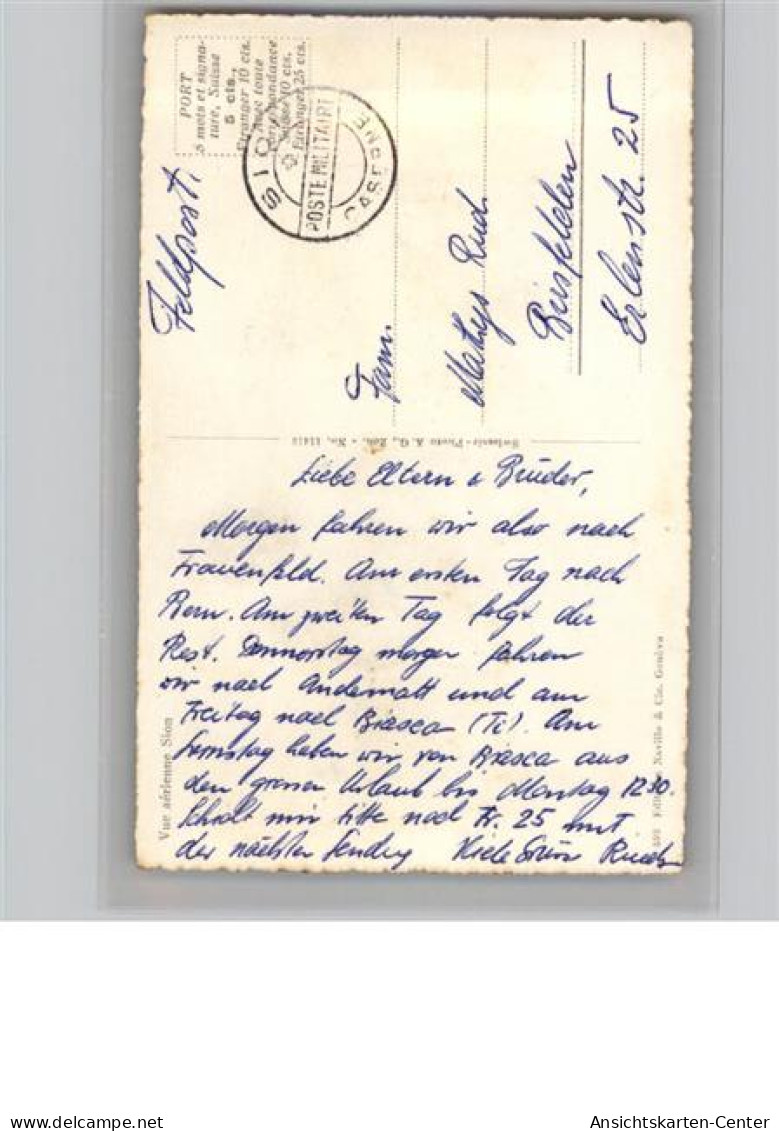 PORT
5 mots et signa-
ture, Suisse
5 cts.,
Etranger 10 cts.
Avec toute
correspondance
Suisse 10 cts.
Etranger 25 cts.
SION
POSTE MILITAIRE
CASERNE
Feldpost.
Fam.
Mathys Rud.
Birsfelden
Erlenstr. 25
Swissair-Photo A.G., Zch. - No. 11419
Liebe Eltern & Brüder,
Morgen fahren wir also nach
Frauenfeld. Am ersten Tag nach
Bern. Am zweiten Tag folgt der
Rest. Donnerstag morgen fahren
wir nach Andermatt und am
Freitag nach Biasca (Ti). Am
Samstag haben wir von Biasca aus
den grossen Urlaub bis Montag 1230.
Schickt mir bitte noch Fr. 25 mit
der nächsten Sendung Viele Grüsse Ruedi
Vue aérienne Sion
Naville & Cie. Genève
delcampe.net
Ansichtskarten-Center